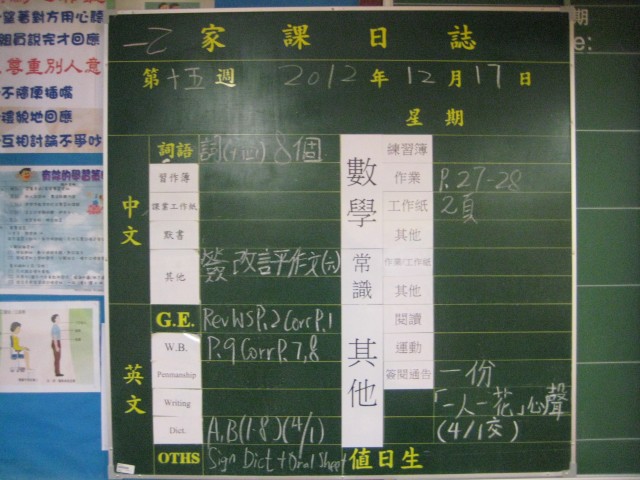 望著對方用心聽
組員說完才回應
尊重別人意
不隨便插嘴
禮貌地回應
互相討論不爭吵
期
e:
一乙 家課日誌
第十五週 2012年12月17日
星期
中文
詞語 詞(十四) 8個
習作簿
課業工作紙
默書
其他 改評作文(六)
英文
G.E. Rev WS P.2 Corr P.1
W.B. P.9 Corr P.7,8
Penmanship
Writing
Dict. A,B(1-8)(4/1)
OTHS Sign Dict + Oral Sheet
數學
練習簿
作業 P.27-28
工作紙 2頁
其他
常識
作業/工作紙
其他
其他
閱讀
運動
簽閱通告 一份
「一人一花」心聲
(4/1交)
值日生